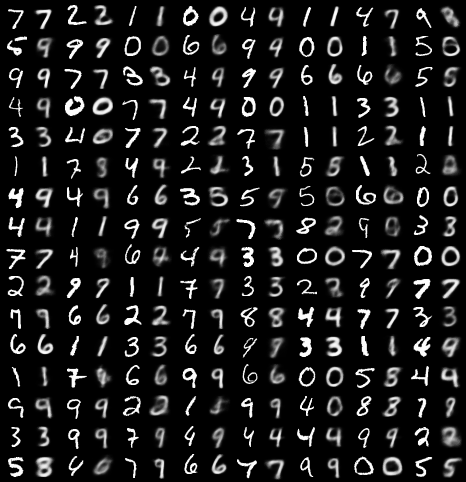 7 7 2 2 1 1 0 0 4 4 1 1 4 7 9
5 9 9 9 0 0 6 6 9 9 0 0 1 1 5 5
9 9 7 7 3 3 4 9 9 9 6 6 6 6 5 5
4 9 0 0 7 7 4 9 0 0 1 1 3 3 1 1
3 3 4 0 7 7 2 2 7 7 1 1 2 2 1 1
1 1 7 9 4 9 2 2 3 1 5 5 1 1 2 8
4 9 4 9 6 6 3 5 5 9 5 0 6 6 0 0
4 4 1 1 9 9 5 7 7 8 2 9 0 3 3
7 7 4 9 6 4 4 9 3 3 0 0 7 7 0 0
2 2 9 9 1 1 7 9 3 3 2 2 9 9 7 7
7 9 6 6 2 2 7 9 8 8 4 4 7 7 3 3
6 6 1 1 3 3 6 6 9 9 3 3 1 1 4 9
1 1 7 6 6 9 9 6 6 0 0 5 8 4 4
9 9 9 9 2 2 1 9 9 4 0 8 8 7 9
3 3 9 9 7 9 4 9 4 4 4 4 9 9 2 2
5 8 4 0 7 9 6 6 7 7 9 9 0 0 5 5